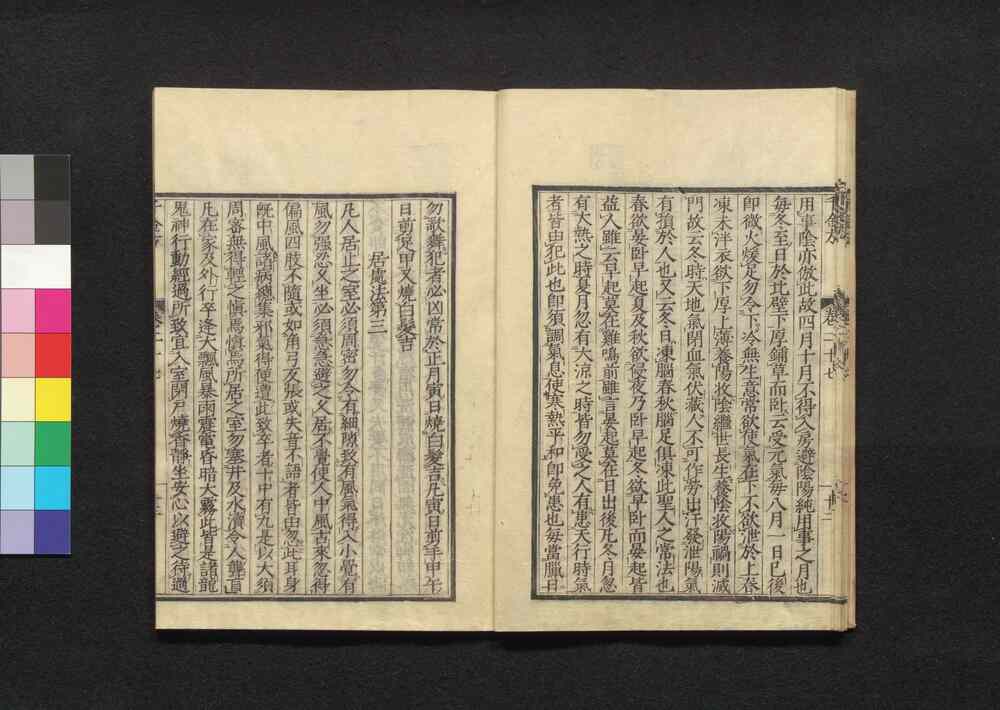 用事陰亦倣此故四月十月不得入房避陰陽純用事之月也
每冬至日於北壁下厚鋪草而臥云受元氣每八月一日已後
即微火煖足勿令下冷無生意常欲使氣在下不欲泄於上春
凍未泮衣欲下厚上薄養陽收陰繼世長生養陰收陽禍則滅
門故云冬時天地氣閉血氣伏藏人不可作勞出汗發泄陽氣
有損於人也又云冬日凍腦春秋腦足俱凍此聖人之常法也
春欲晏臥早起夏及秋欲侵夜乃臥早起冬欲早臥而晏起皆
益人雖云早起莫在雞鳴前雖言晏起莫在日出後凡冬月忽
有大熱之時夏月忽有大涼之時皆勿受之人有患天行時氣
者皆由犯此也即須調氣息使寒熱平和即免患也每當臘日
勿歌舞犯者必凶常於正月寅日燒白髮吉凡寅日剪手甲午
日剪足甲又燒白髮吉
居處法第三
凡人居止之室必須周密勿令有細隙致有風氣得入小覺有
風勿强忍久坐必須急急避之久居不覺使人中風古來忽得
偏風四肢不隨或如角弓反張或失音不語者皆由忽此耳身
既中風諸病總集邪氣得便遭此致卒者十中有九是以大須
周密無得輕之慎焉慎焉所居之室勿塞井及水瀆令人聾盲
凡在家及外行卒逢大飄風暴雨震電昏暗大霧此皆是諸龍
鬼神行動經過所致宜入室閉戶燒香靜坐安心以避之待過